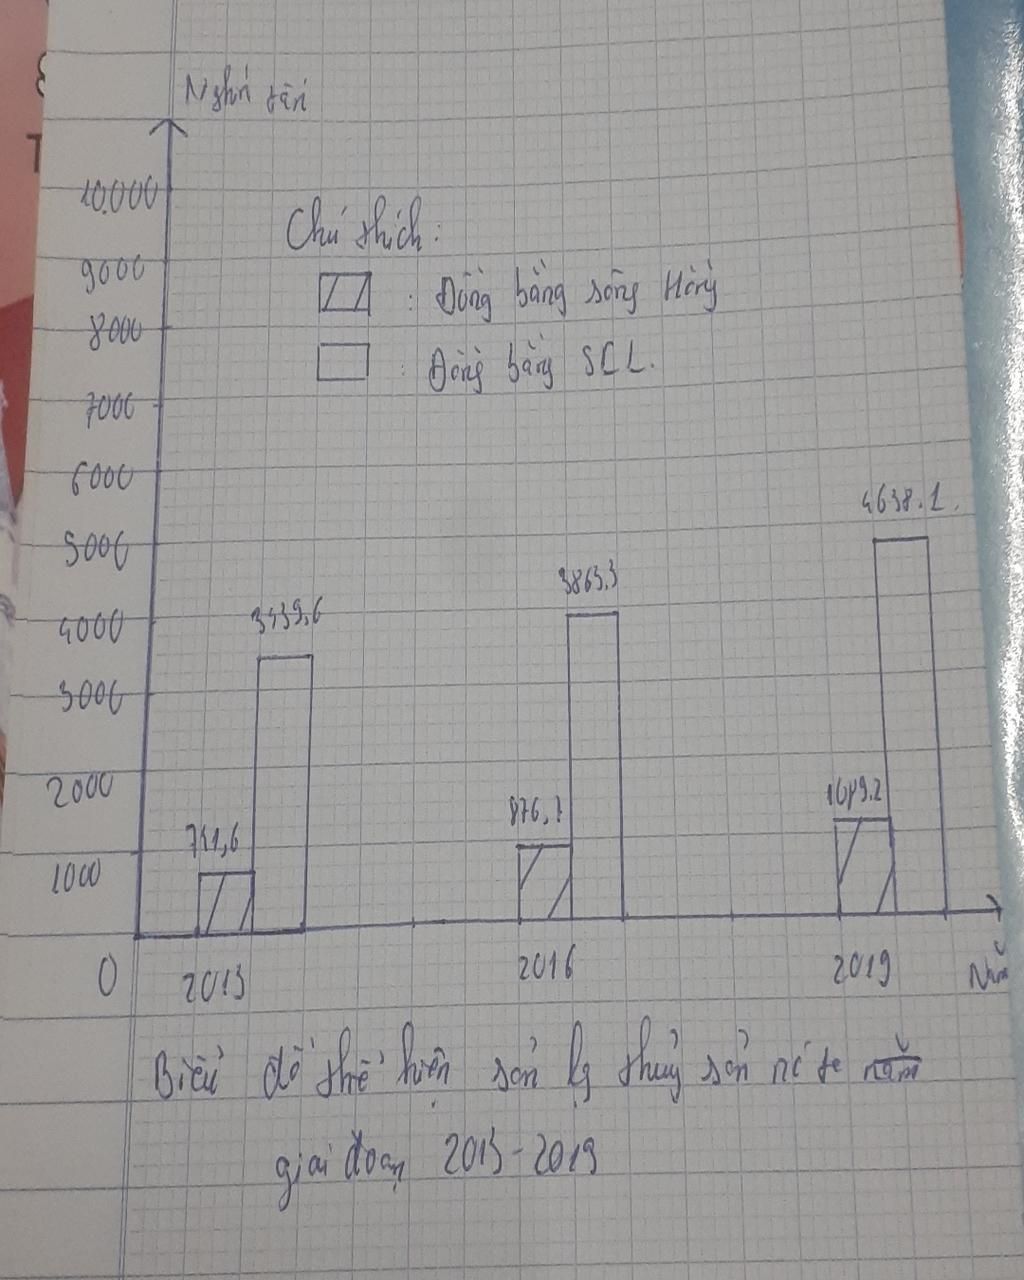 Nghìn tấn
10.000
9000
8000
7000
6000
5000
4000
3000
2000
1000
0
Chú thích:
: Đồng bằng sông Hồng
: Đồng bằng SCL.
3439,6
3863,3
4638.1.
876,7
2013
2016
2019
Năm
Biểu đồ thể hiện sản lg thuỷ sản nc ta năm
giai đoạn 2013-2019